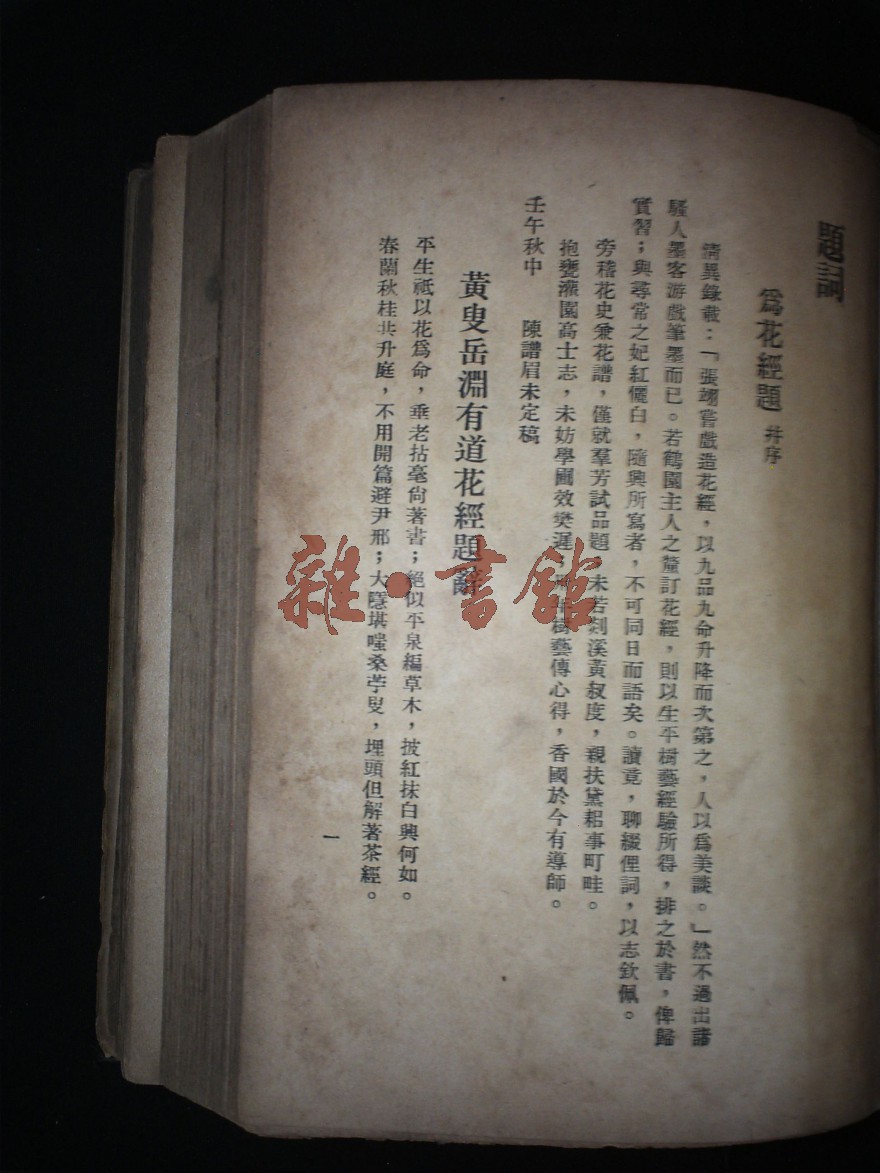 題詞
為花經題 并序
清異錄載：「張翊嘗戲造花經，以九品九命升降而次第之，人以為美談。」然不過出諸
騷人墨客游戲筆墨而已。若鶴園主人之釐訂花經，則以生平樹藝經驗所得，排之於書，俾歸
實習；與尋常之妃紅儷白，隨興所寫者，不可同日而語矣。讀竟，聊綴俚詞，以志欽佩。
旁稽花史兼花譜，僅就羣芳試品題，未若剡溪黃叔度，親扶黛耜事町畦。
抱甕灌園高士志，未妨學圃效樊遲；年樹藝傳心得，香國於今有導師。
壬午秋中 陳譜眉未定稿
黃叟岳淵有道花經題辭
平生祇以花為命，垂老拈毫尙著書；絕似平泉編草木，披紅抹白興何如。
春蘭秋桂共升庭，不用開篇避尹邢；大隱堪嗤桑苧叟，埋頭但解著茶經。
一
雜·書館